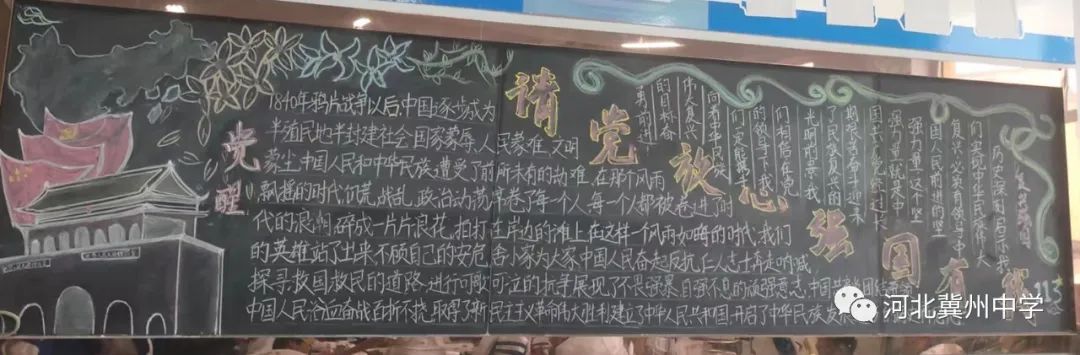 觉醒
1840年鸦片战争以后,中国逐步成为
半殖民地半封建社会国家蒙辱、人民蒙难、文明
蒙尘,中国人民和中华民族遭受了前所未有的劫难,在那个风雨
飘摇的时代,饥荒,战乱,政治动荡席卷了每一个人,每一个人都被卷进了时
代的浪潮,碎成一片片浪花,拍打在岸边的滩上,在这样一个风雨如晦的时代,我们
的英雄站了出来,不顾自己的安危,舍小家为大家,中国人民奋起反抗,仁人志士奔走呐喊,
探寻救国救民的道路,进行可歌可泣的抗争,展现了不畏强暴自强不息的顽强意志,中国共产党
中国人民浴血奋战百折不挠,取得了新民主主义革命伟大胜利,建立了中华人民共和国,开启了中华民族发展
请党放心强国有我
历史深刻启示我
们实现中华民族伟大
复兴必须有领导中
国人民前进的坚
强力量,这个坚
强力量就是中
国共产党
了民族复兴的
光明前景,我
们相信在党
的领导下,我
们一定能够
向着中华民族
伟大复兴
的目标奋
勇前进
213
河北冀州中学